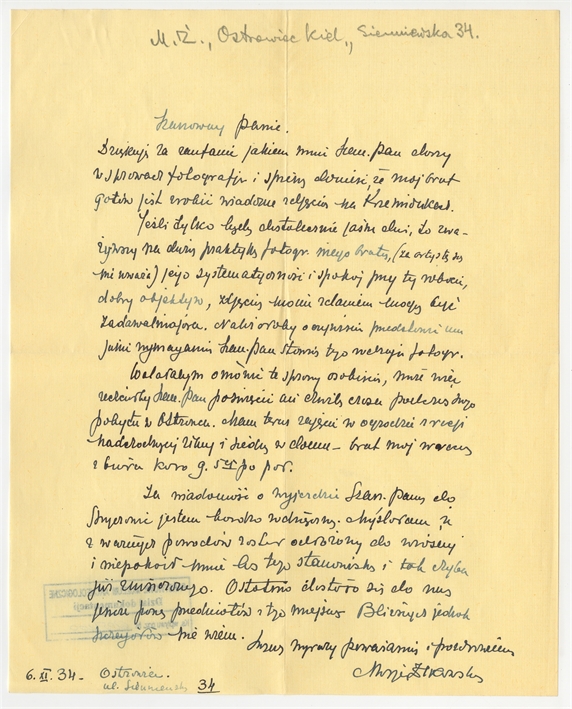 M. Ż., Ostrowiec Kiel., Sienniewska 34.
Szanowny Panie.
Dziękuję za zaufanie jakiem mnie Szan. Pan darzy
w sprawach fotografji i śpieszę donieść, że mój brat
gotów jest zrobić wiadome zdjęcia na Krzemionkach.
Jeśli tylko będą dostatecznie jasne dni, to zwa-
żywszy na dużą praktykę fotogr. mego brata, (za artystę się
nie uważa) jego systematyczność i spokój przy tej robocie,
dobry objektyw, zdjęcia moim zdaniem mogą być
zadawalniające. Należałoby oczywiście przedstawić mu
jakie wymagania Szan. Pan stawia tego rodzaju fotogr.
Wolałabym omówić te sprawy osobiście, może więc
zechciałby Szan. Pan poświęcić mi chwilę czasu podczas swego
pobytu w Ostrowcu. Mam teraz zajęcie w ogrodzie z racji
nadchodzącej zimy i siedzę w domu – brat mój wraca
z biura koło g. 5ej po poł.
Za wiadomość o wyjeździe Szan. Pana do
jestem bardzo wdzięczny. Myślałam, iż
z ważnych powodów został odłożony do wiosny
i niepokoił mnie los tego stanowiska i tak chyba
już zniszczonego. Ostatnio dostało się do nas
jeszcze parę przedmiotów z tego miejsca. Bliższych jednak
szczegółów nie wiem.
Łączę wyrazy poważania i pozdrowienia
6. XI. 34 - Ostrowiec.
ul. Sienniewska 34